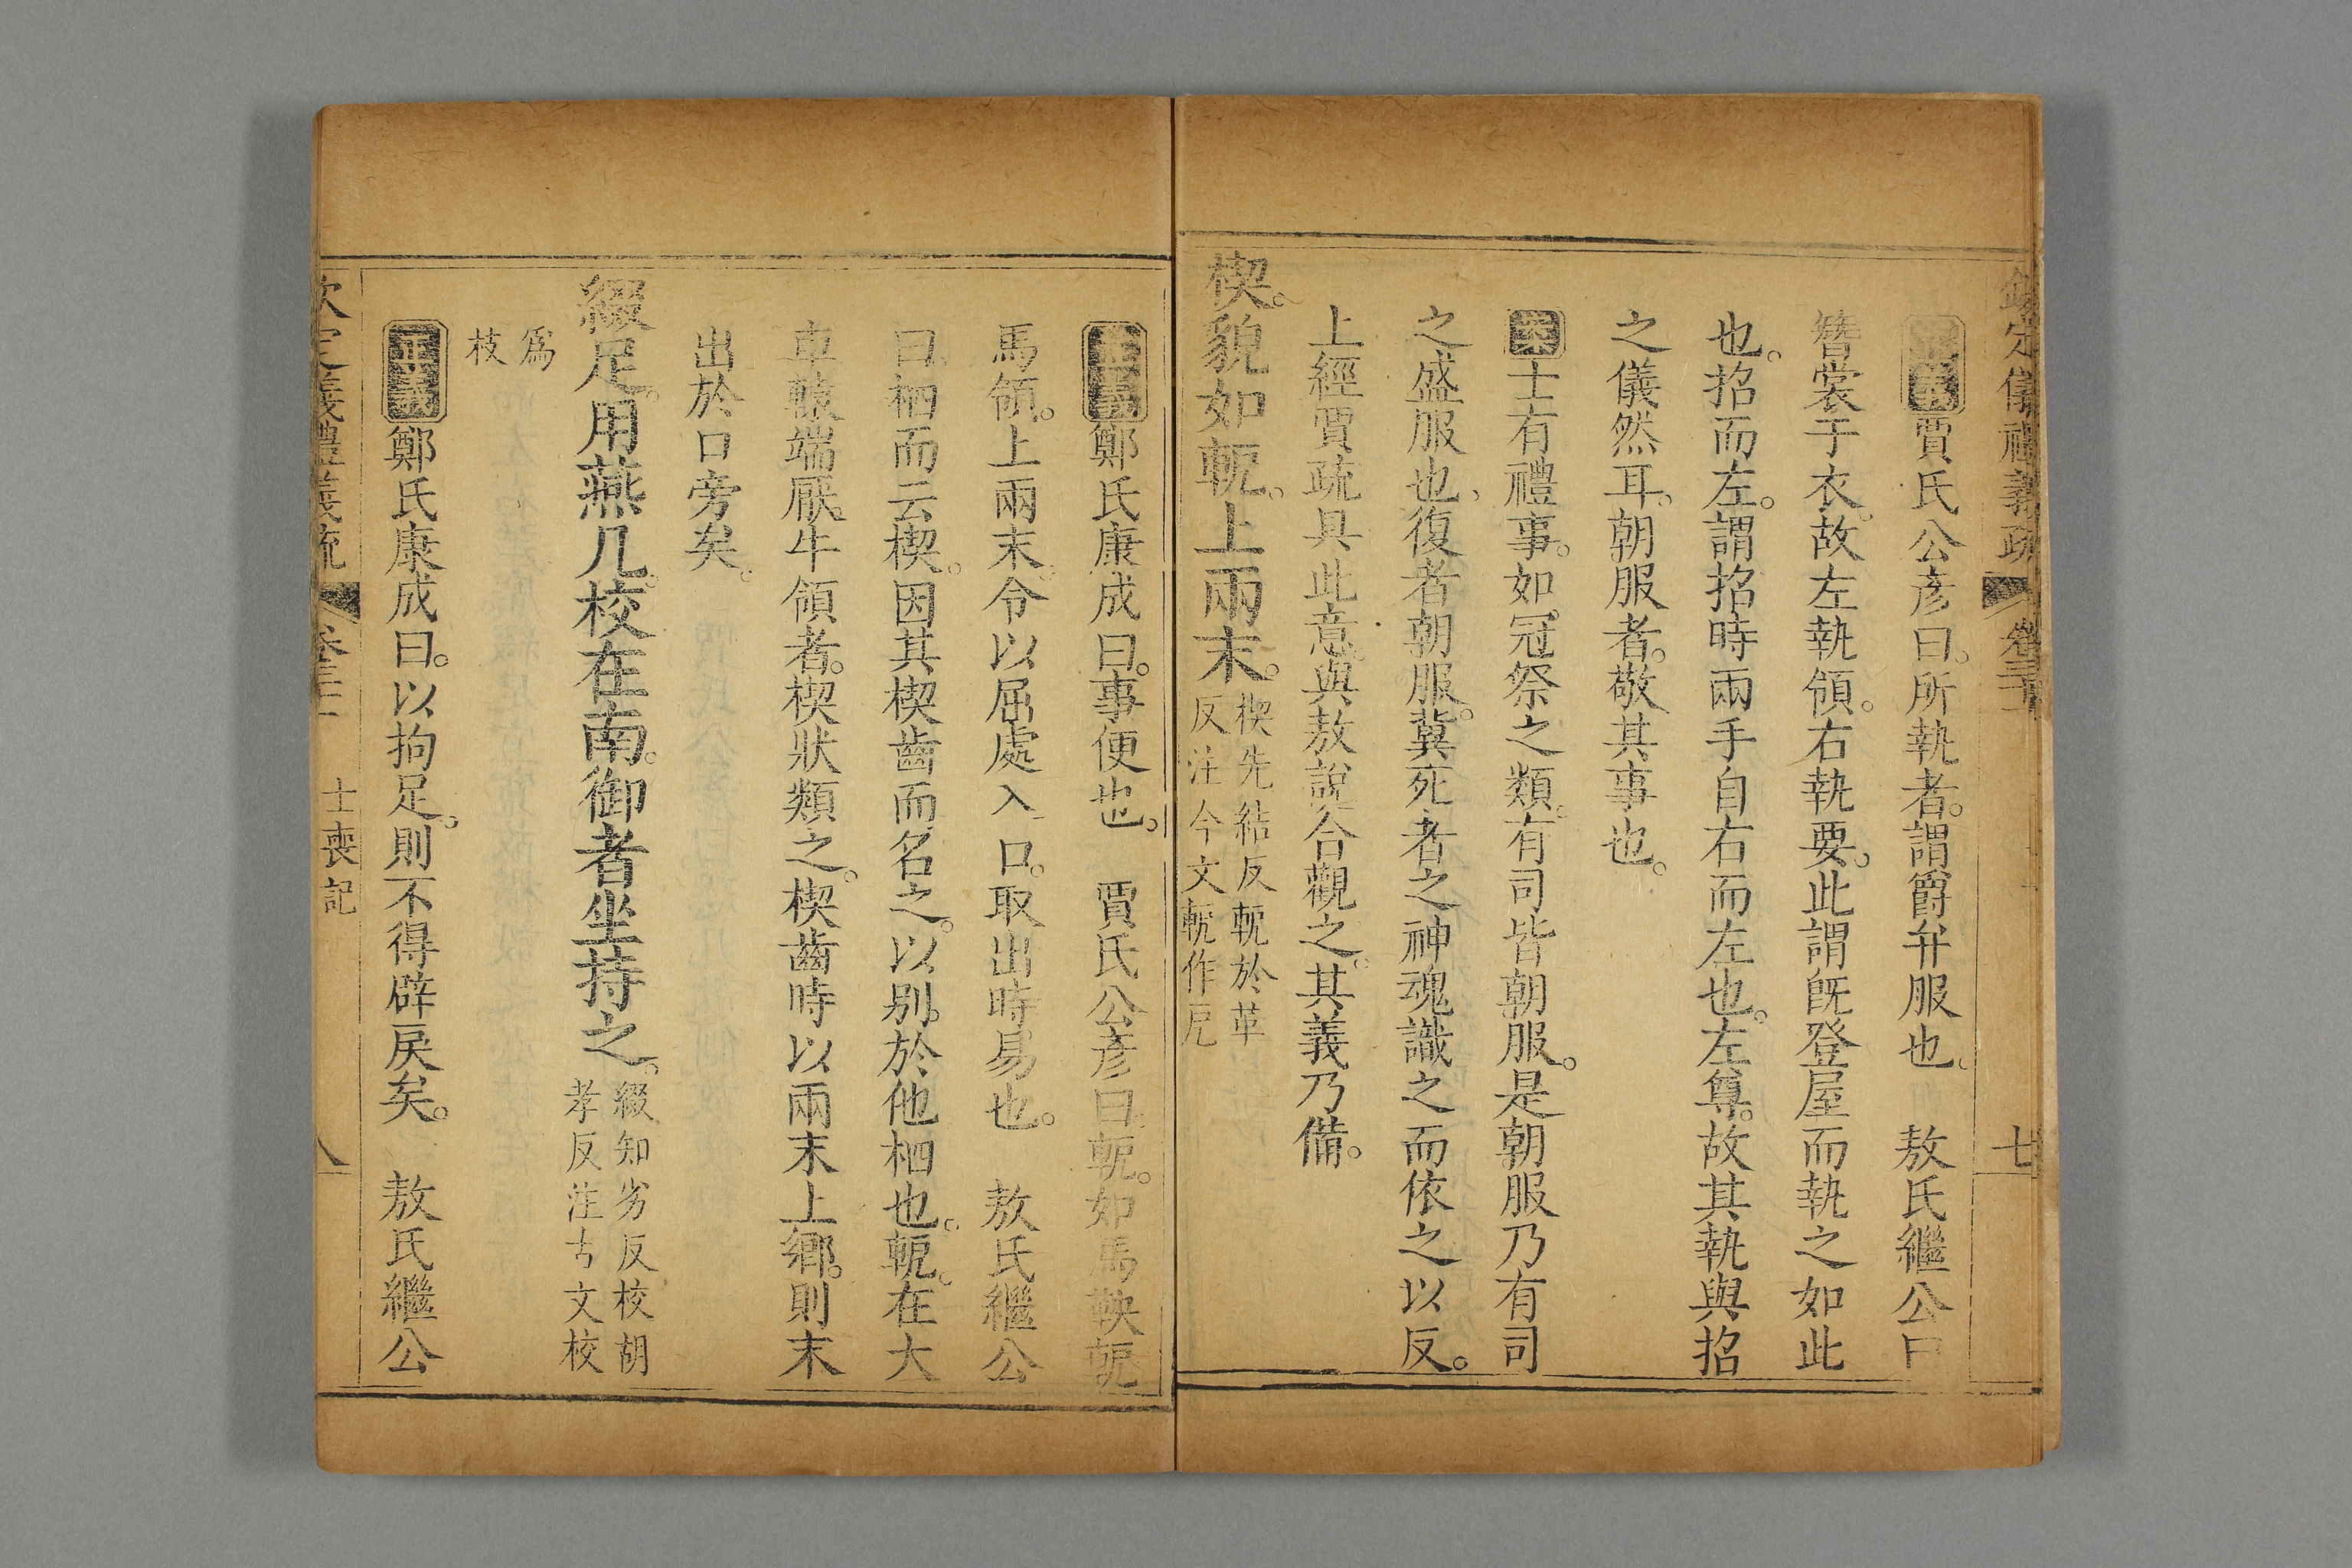 欽定儀禮義疏 卷三十一 七
正義賈氏公彥曰。所執者。謂爵弁服也。 敖氏繼公曰
簪裳于衣。故左執領。右執要。此謂旣登屋而執之如此
也。招而左。謂招時兩手自右而左也。左尊。故其執與招
之儀然耳。朝服者。敬其事也。
案士有禮事。如冠祭之類。有司皆朝服。是朝服乃有司
之盛服也。復者朝服。冀死者之神魂識之而依之以反。
上經賈疏具此意。與敖說合觀之。其義乃備。
楔。貌如軶。上兩末。楔先結反軶於革
反注今文軶作厄
正義鄭氏康成曰。事便也。 賈氏公彥曰。軶。如馬鞅軶
馬領。上兩末。令以屈處入口。取出時易也。 敖氏繼公
曰。柶而云楔。因其楔齒而名之。以別於他柶也。軶。在大
車轅端厭牛領者。楔狀類之。楔齒時以兩末上鄉。則末
出於口旁矣。
綴足。用燕几。校在南。御者坐持之。綴知劣反校胡
孝反注古文校
爲
枝
正義鄭氏康成曰。以拘足。則不得辟戾矣。 敖氏繼公
欽定儀禮義疏 卷三十一 士喪記 八